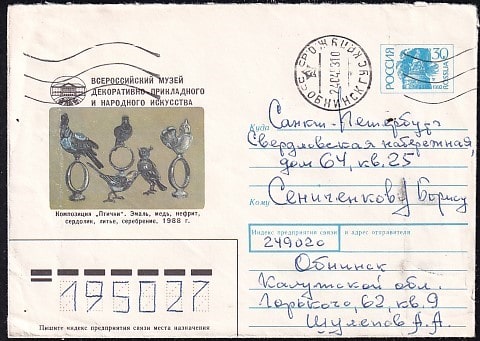 ВСЕРОССИЙСКИЙ МУЗЕЙ
ДЕКОРАТИВНО-ПРИКЛАДНОГО
И НАРОДНОГО ИСКУССТВА
РОССИЯ
30
ROSSIJA
Куда
Санкт-Петербург
Свердловская набережная,
дом 64, кв. 25
Кому
Сениченкову Борису
Композиция „Птички". Эмаль, медь, нефрит,
сердолик, литье, серебрение. 1988 г.
Индекс предприятия связи и адрес отправителя
249020
Обнинск
Калужской обл.
Горького, 62, кв. 9
Шулепов А.А.
195027
Пишите индекс предприятия связи места назначения